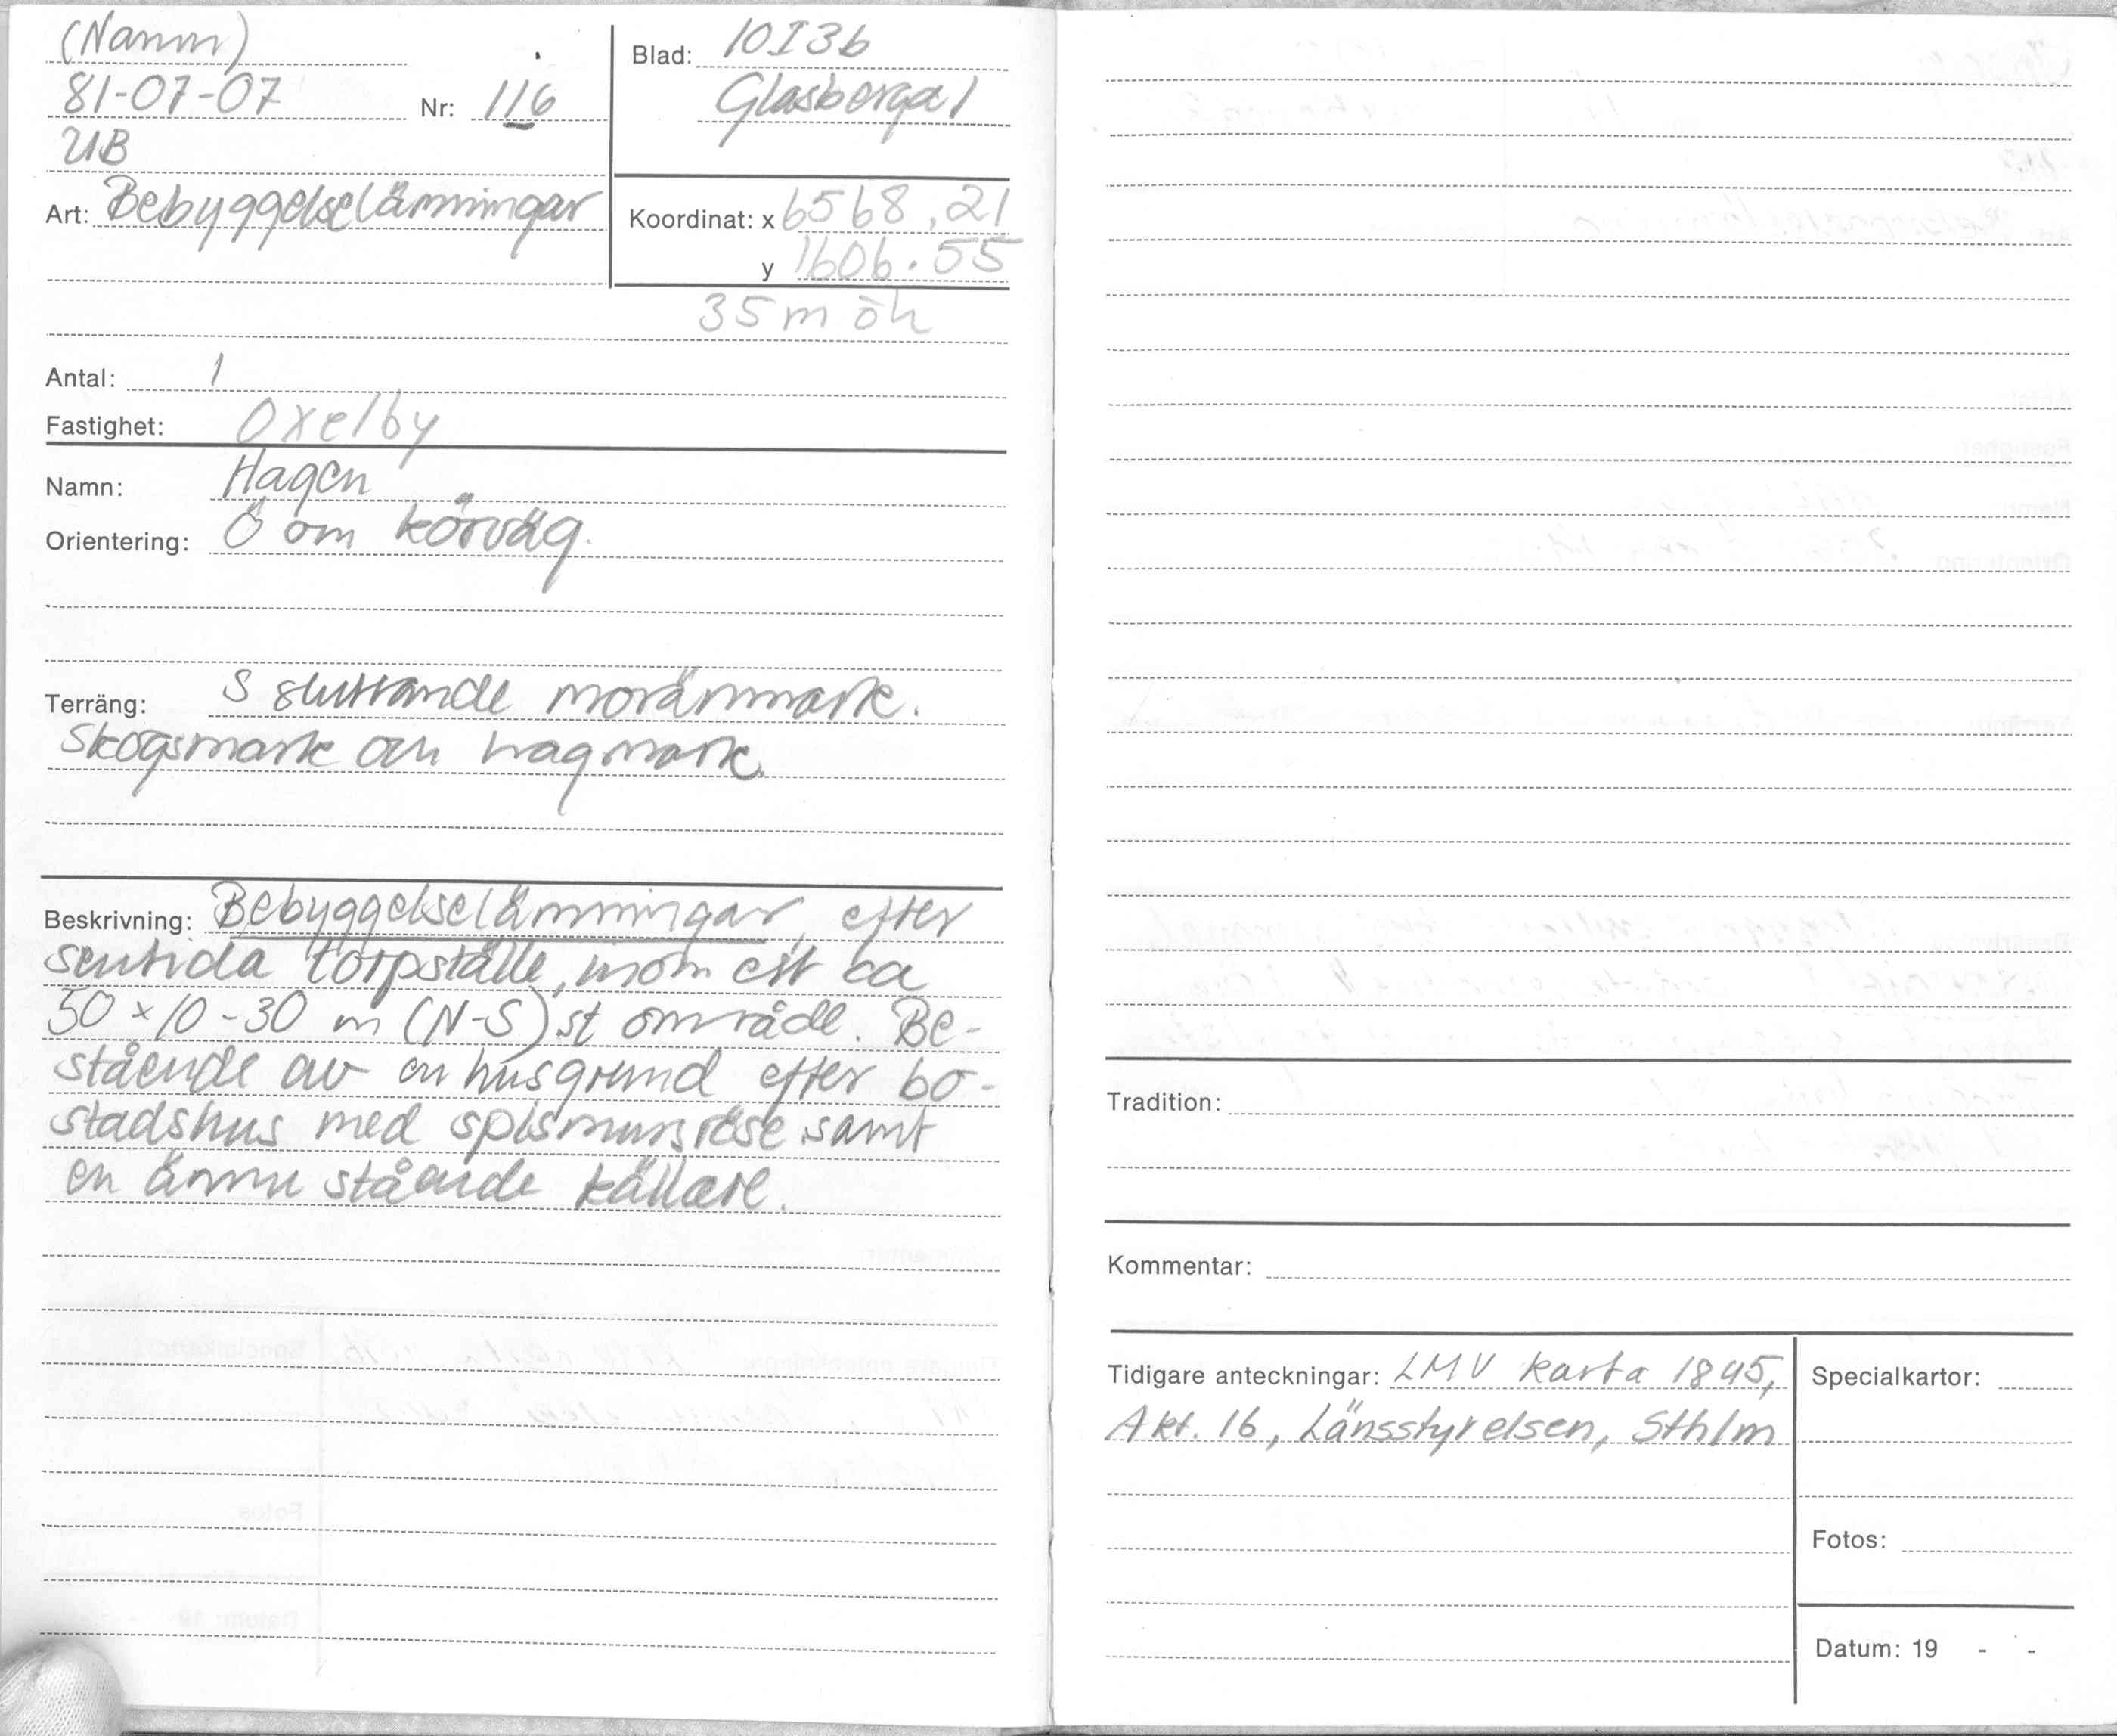 (Namn)
81-07-07 Nr: 116
UB
Art: Bebyggelselämningar
Blad: 10I3b
Glasberga 1
Koordinat: x 6568,21
y 1606.55
35 m öh
Antal: 1
Fastighet: Oxelby
Namn: Hagen
Orientering: Ö om körväg.
Terräng: S sluttande moränmark.
Skogsmark och hagmark.
Beskrivning: Bebyggelselämningar, efter
sentida torpställe, inom ett ca
50 x 10-30 m (N-S) st område. Be-
stående av en husgrund efter bo-
stadshus med spismursröse samt
en ännu stående källare.
Tradition:
Kommentar:
Tidigare anteckningar: LMV karta 1845,
Akt. 16, Länsstyrelsen, Sthlm
Specialkartor:
Fotos:
Datum: 19 - -